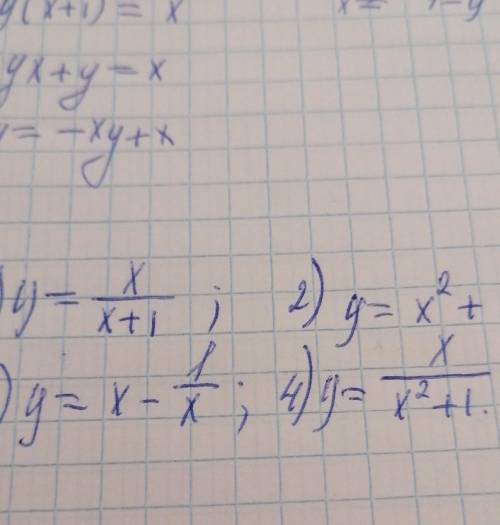 y(x+1) = x x = 1-y
yx+y = x
= -xy+x
) y = x/(x+1) ; 2) y = x² +
) y = x - 1/x ; 4) y = x/(x²+1).